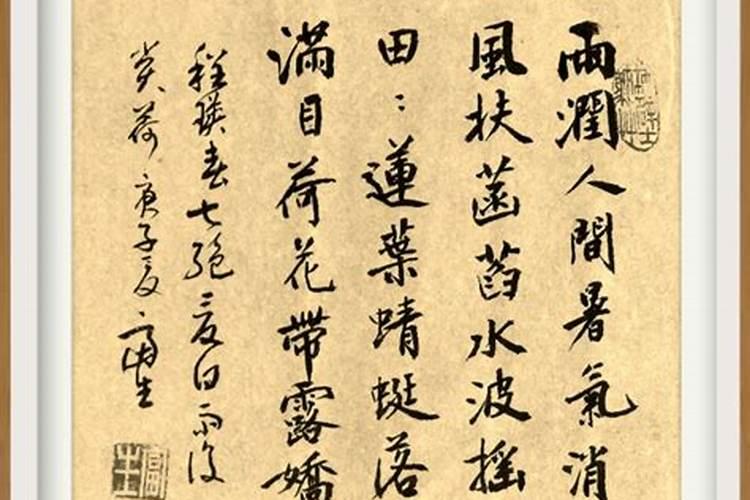 雨潤人間暑氣消
風扶菡萏水波搖
田〻蓮葉蜻蜓落
滿目荷花帶露嬌
程瑛春七絕夏日雨後
賞荷庚子夏